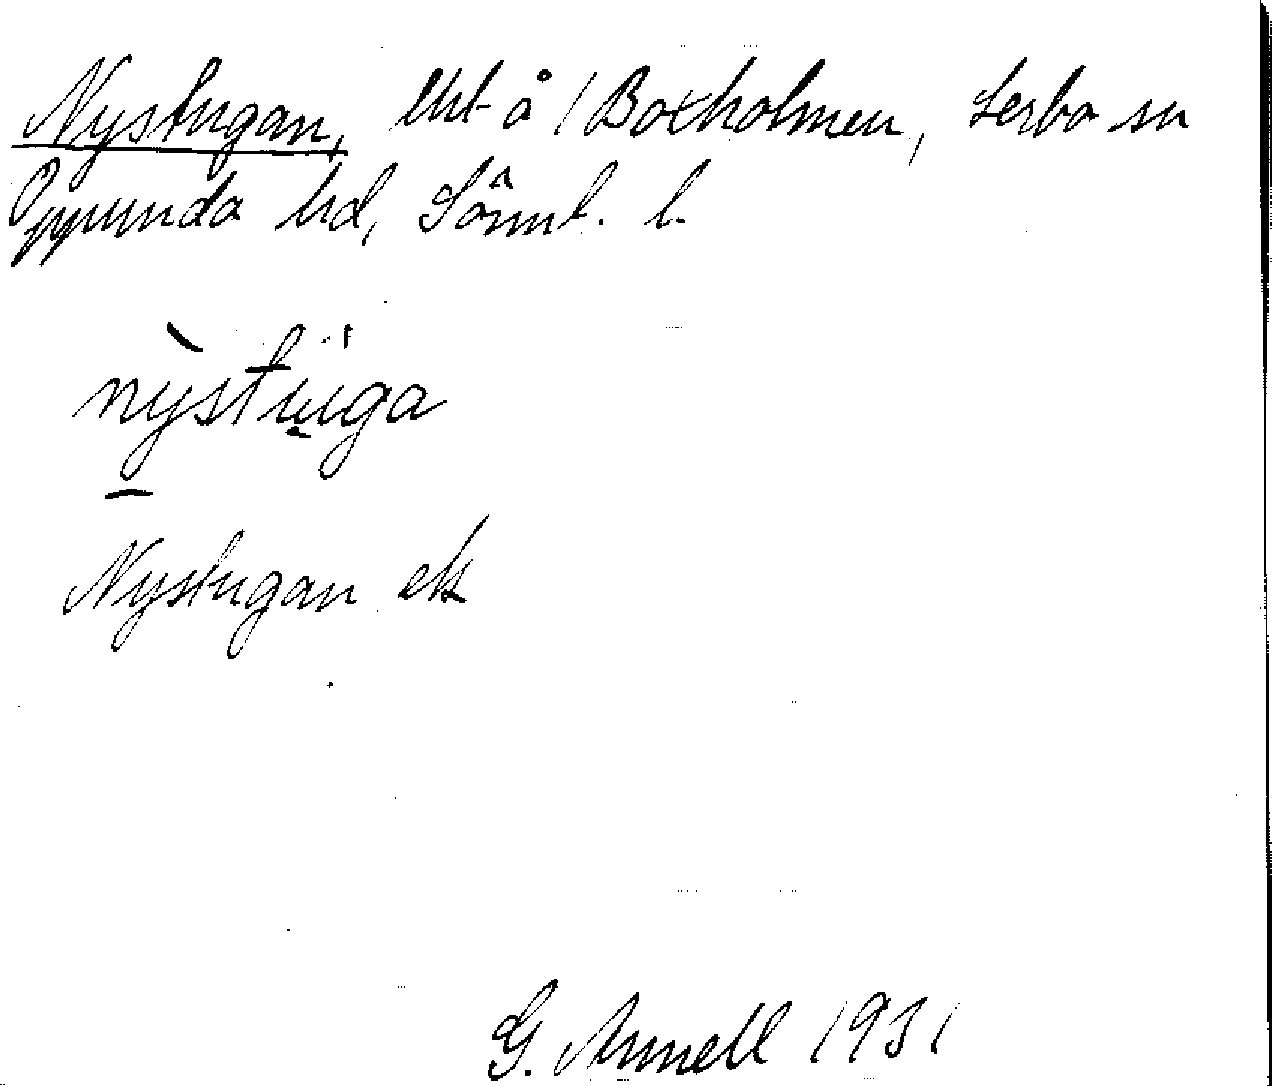 Nystugan, lht å 1 Boxholmen, Lerbo sn
Oppunda hd, Sörml. l.
nystuga
Nystugan ek
G. Annell 1931